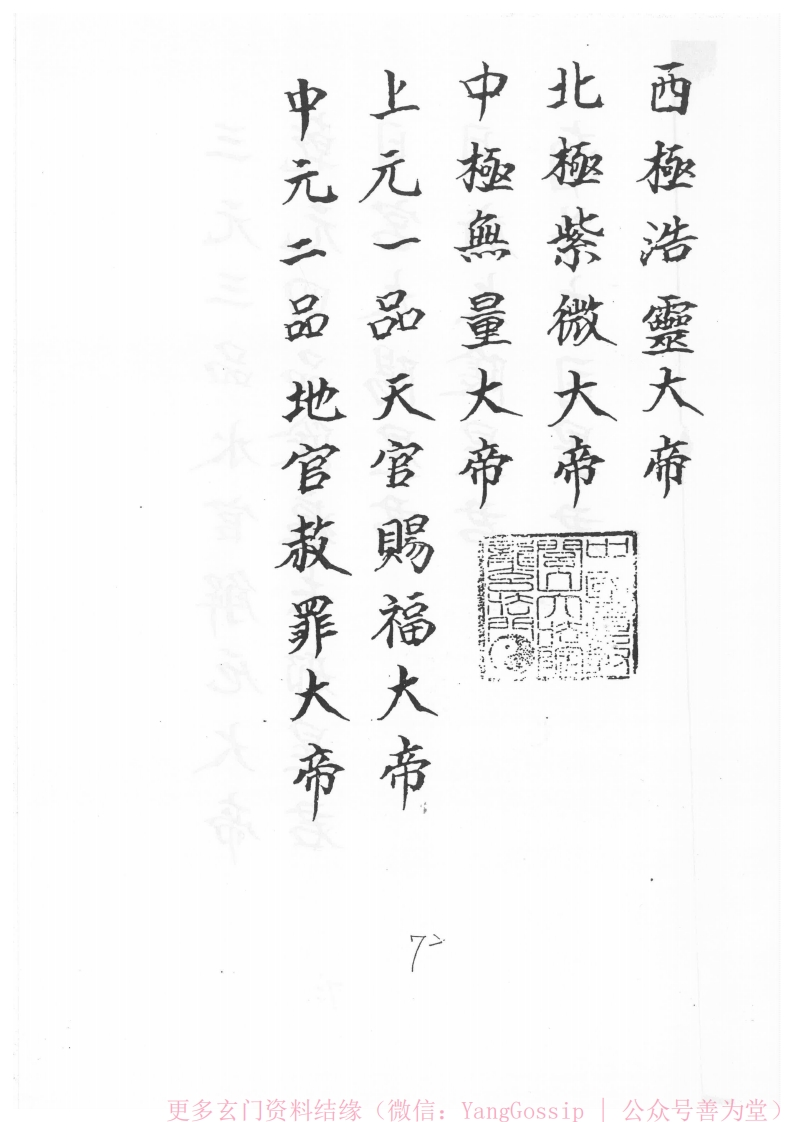 西極浩靈大帝
北極紫微大帝
中極無量大帝
上元一品天官賜福大帝
中元二品地官赦罪大帝
7
更多玄门资料结缘（微信：YangGossip | 公众号善为堂）